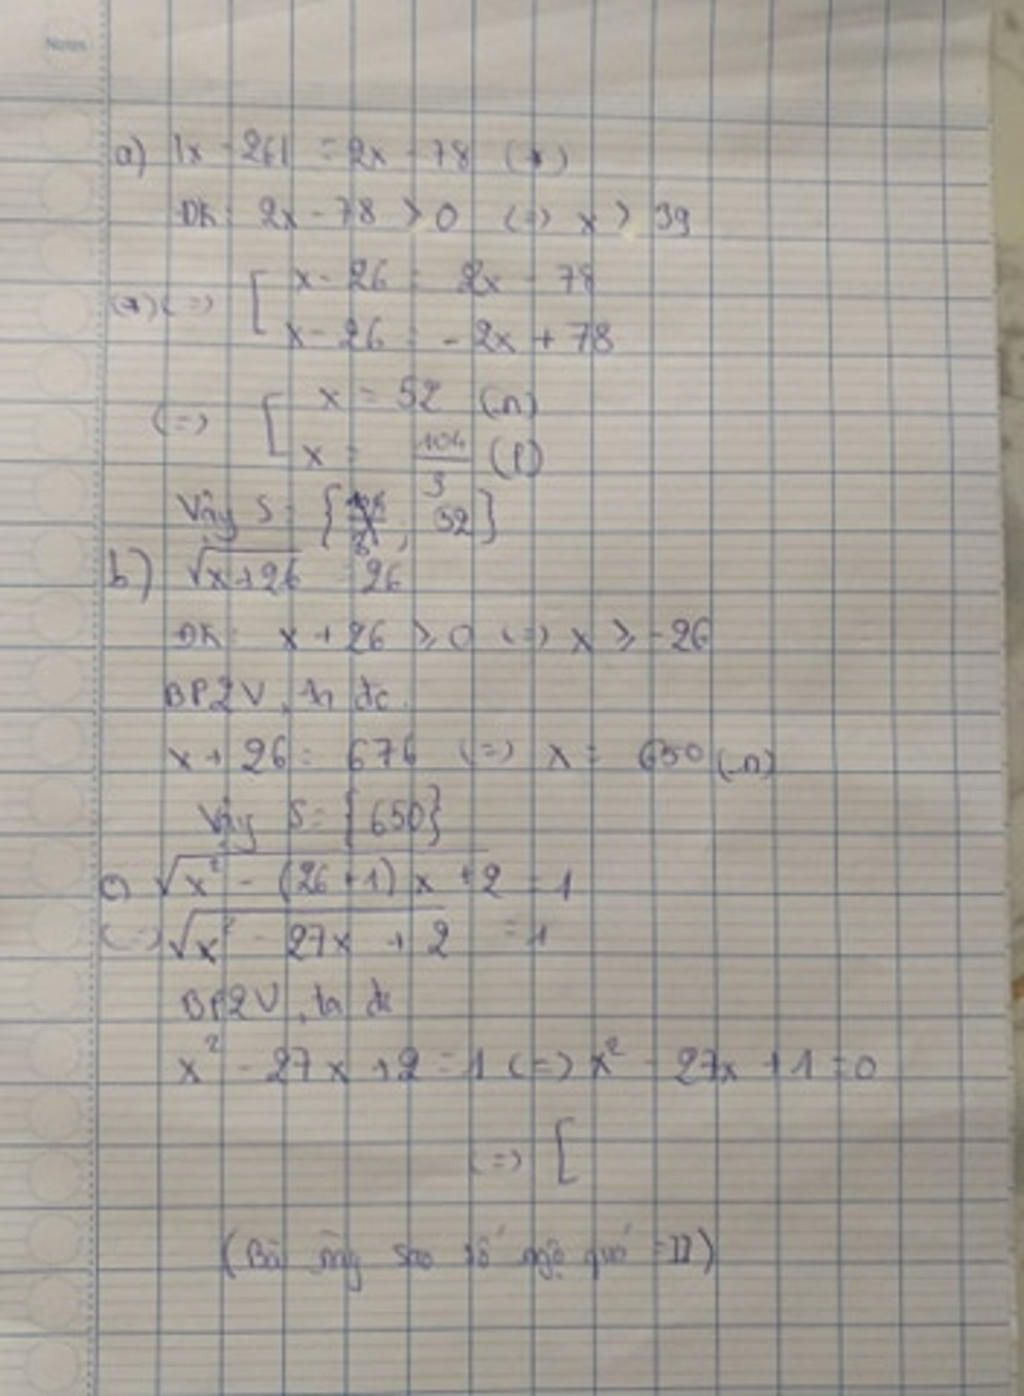 Notes
a) |x - 26| = 2x - 78 (*)
ĐK: 2x - 78 > 0 (=) x > 39
(*) (=) [ x - 26 = 2x - 78
x - 26 = -2x + 78
(=) [ x = 52 (n)
x = 104/3 (l)
Vậy S = { , 52}
b) √x+26 = 26
ĐK: x + 26 ≥ 0 (=) x ≥ -26
BP2V, ta đc
x + 26 = 676 (=) x = 650 (n)
Vậy S = {650}
c) √x² - (26+1)x + 2 = 1
(=) √x² - 27x + 2 = 1
BP2V, ta đc
x² - 27x + 2 = 1 (=) x² - 27x + 1 = 0
(=) [
(Bài này sao số ngộ quá =))